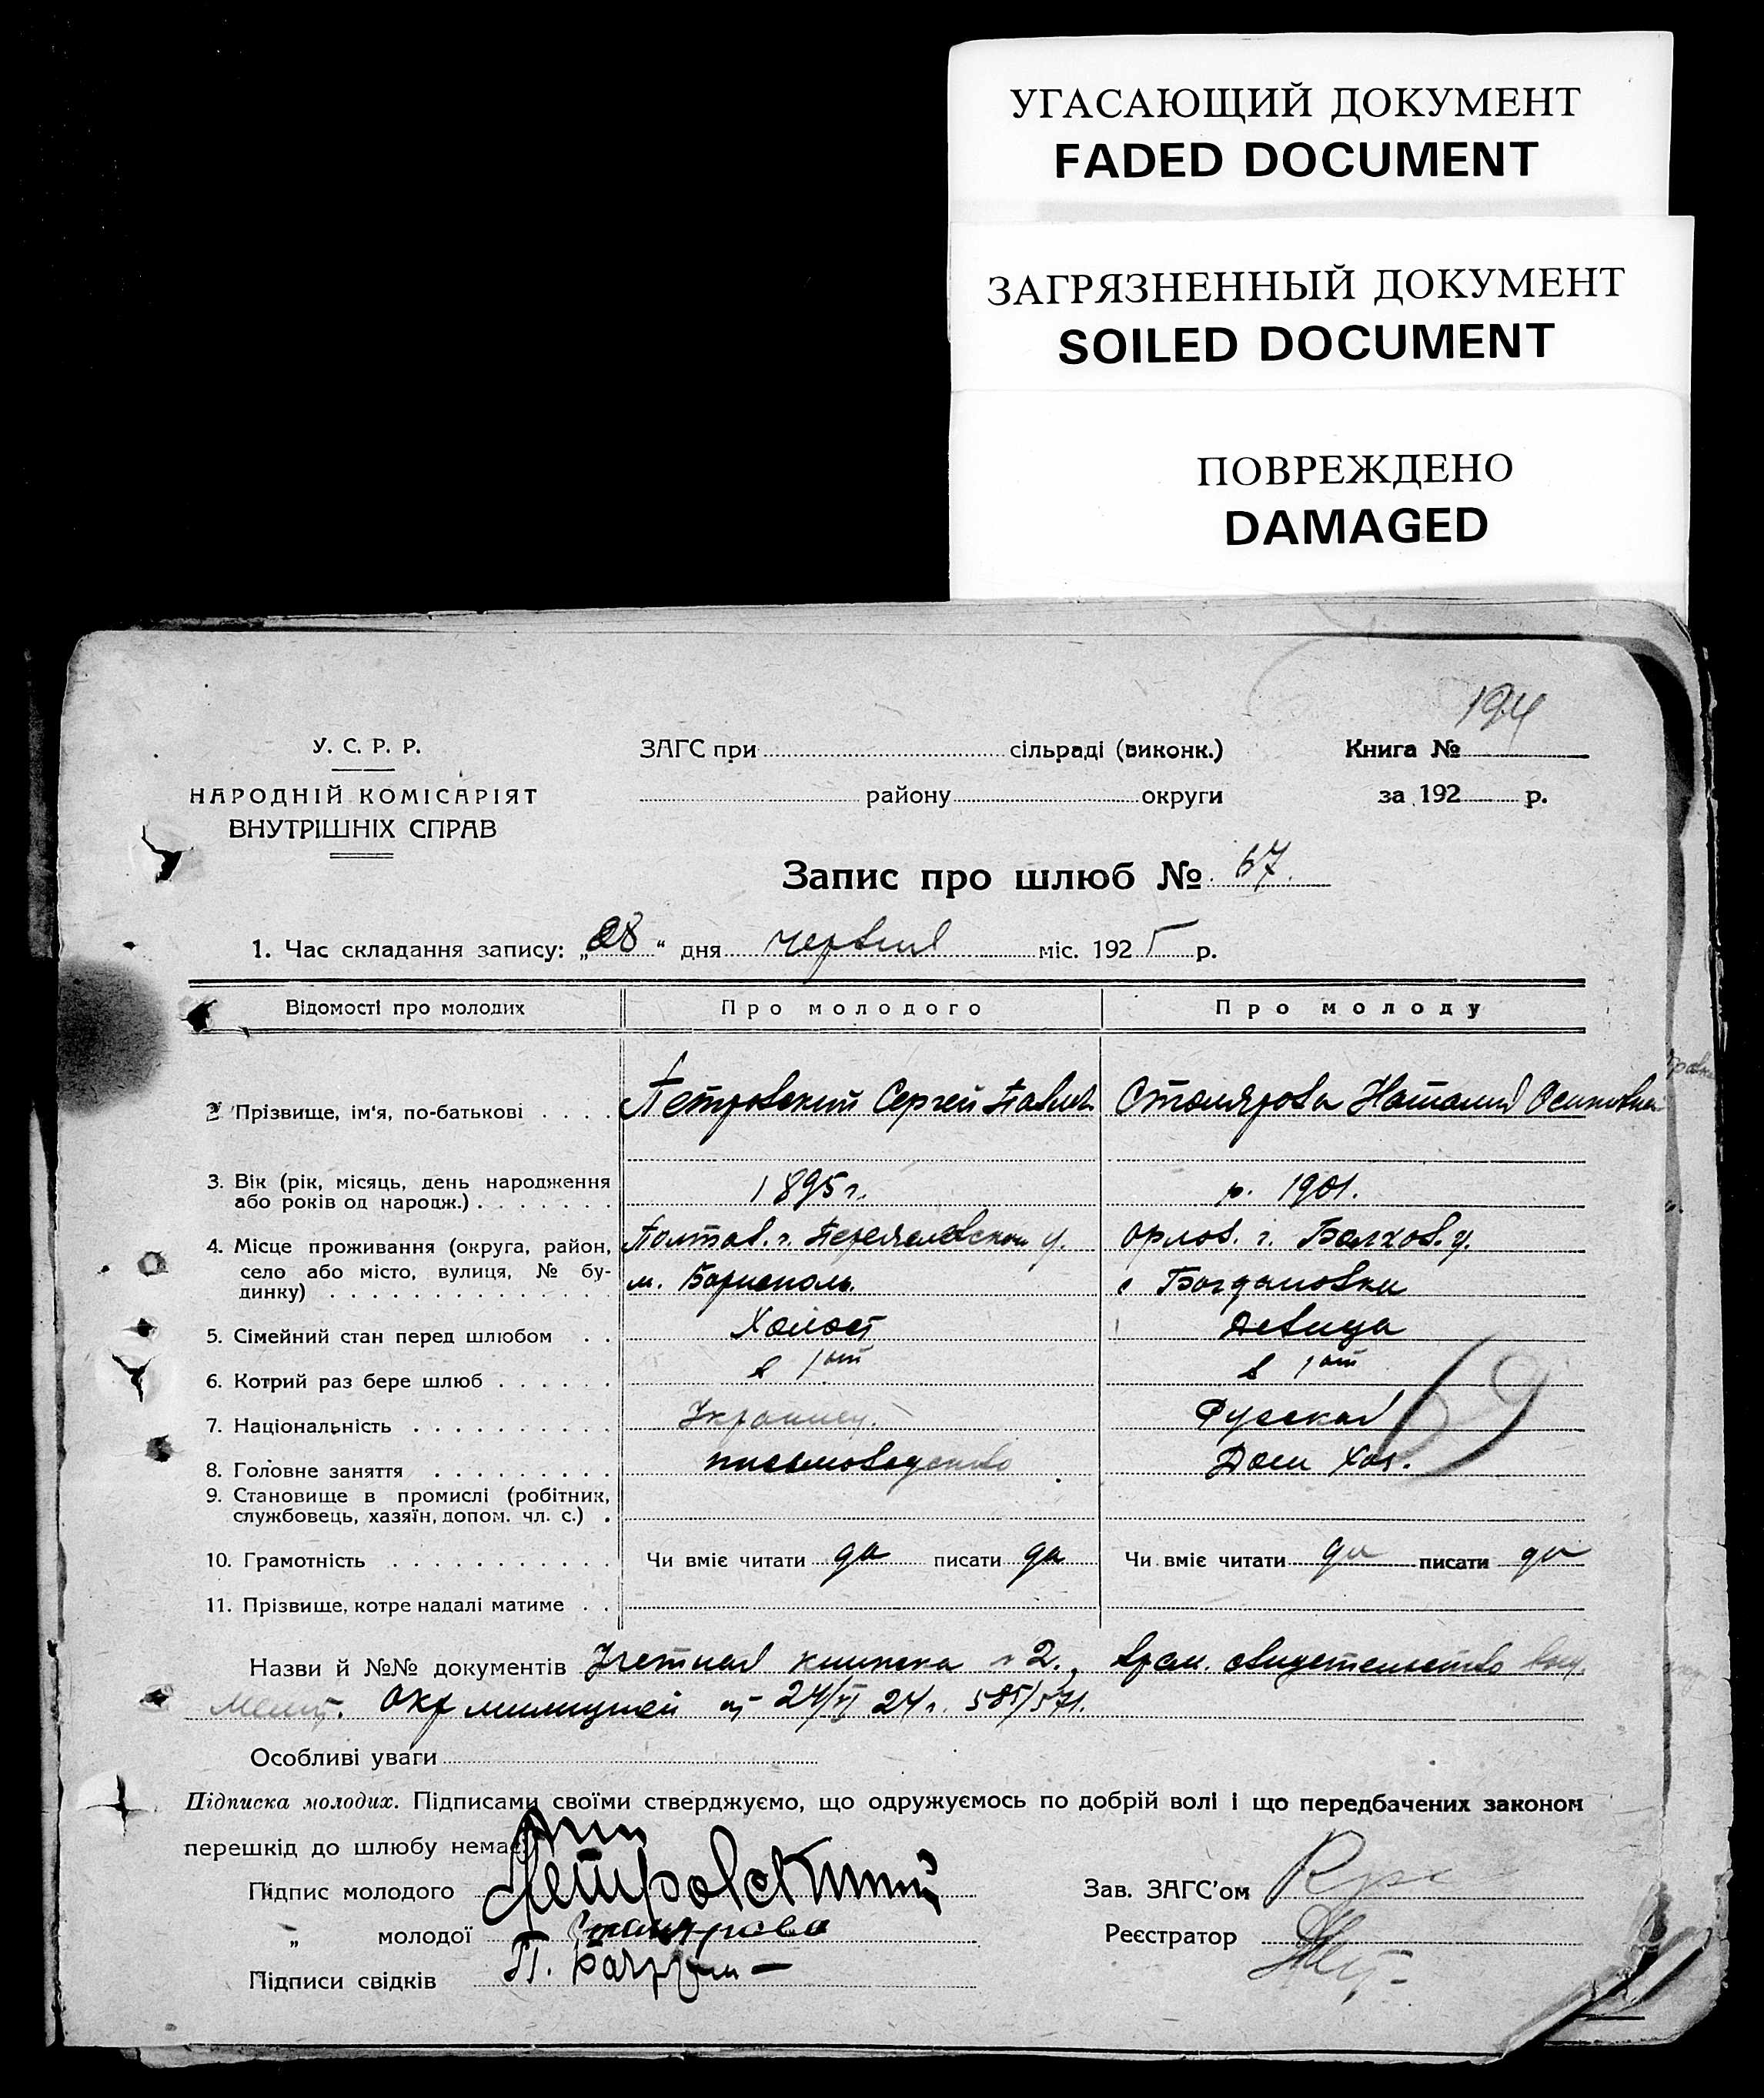 УГАСАЮЩИЙ ДОКУМЕНТ
FADED DOCUMENT
ЗАГРЯЗНЕННЫЙ ДОКУМЕНТ
SOILED DOCUMENT
ПОВРЕЖДЕНО
DAMAGED
194
У. С. Р. Р. ЗАГС при сільраді (виконк.) Книга №
НАРОДНІЙ КОМІСАРІЯТ району округи за 192 р.
ВНУТРІШНІХ СПРАВ
Запис про шлюб № 67.
1. Час складання запису: „28“ дня червня міс. 1925 р.
Відомості про молодих Про молодого Про молоду
2. Прізвище, ім'я, по-батькові Петровский Сергей Павл. Столярова Наталия Осиповна
3. Вік (рік, місяць, день народження 1895 г. р. 1901.
або років од народж.)
4. Місце проживання (округа, район, Полтав. г. Переяславском у. Орлов. г. Болхов. у.
село або місто, вулиця, № бу- м. Борисполь. с Богдановки
динку)
5. Сімейний стан перед шлюбом Холост Девица
6. Котрий раз бере шлюб в 1ый в 1ый
7. Національність Украинец. Русская
8. Головне заняття письмоводство Дом Хоз. 69
9. Становище в промислі (робітник,
службовець, хазяїн, допом. чл. с.)
10. Грамотність Чи вміє читати да писати да Чи вміє читати да писати да
11. Прізвище, котре надалі матиме
Назви й №№ документів Учетная книжка № 2, врем. свидетельство выд.
Окр милицией от 24/VI 24 г. 585/571.
Особливі уваги
Підписка молодих. Підписами своїми стверджуємо, що одружуємось по добрій волі і що передбачених законом
перешкід до шлюбу немає.
Підпис молодого Петровский Зав. ЗАГС'ом
„ молодої Столярова Реєстратор
Підписи свідків П.